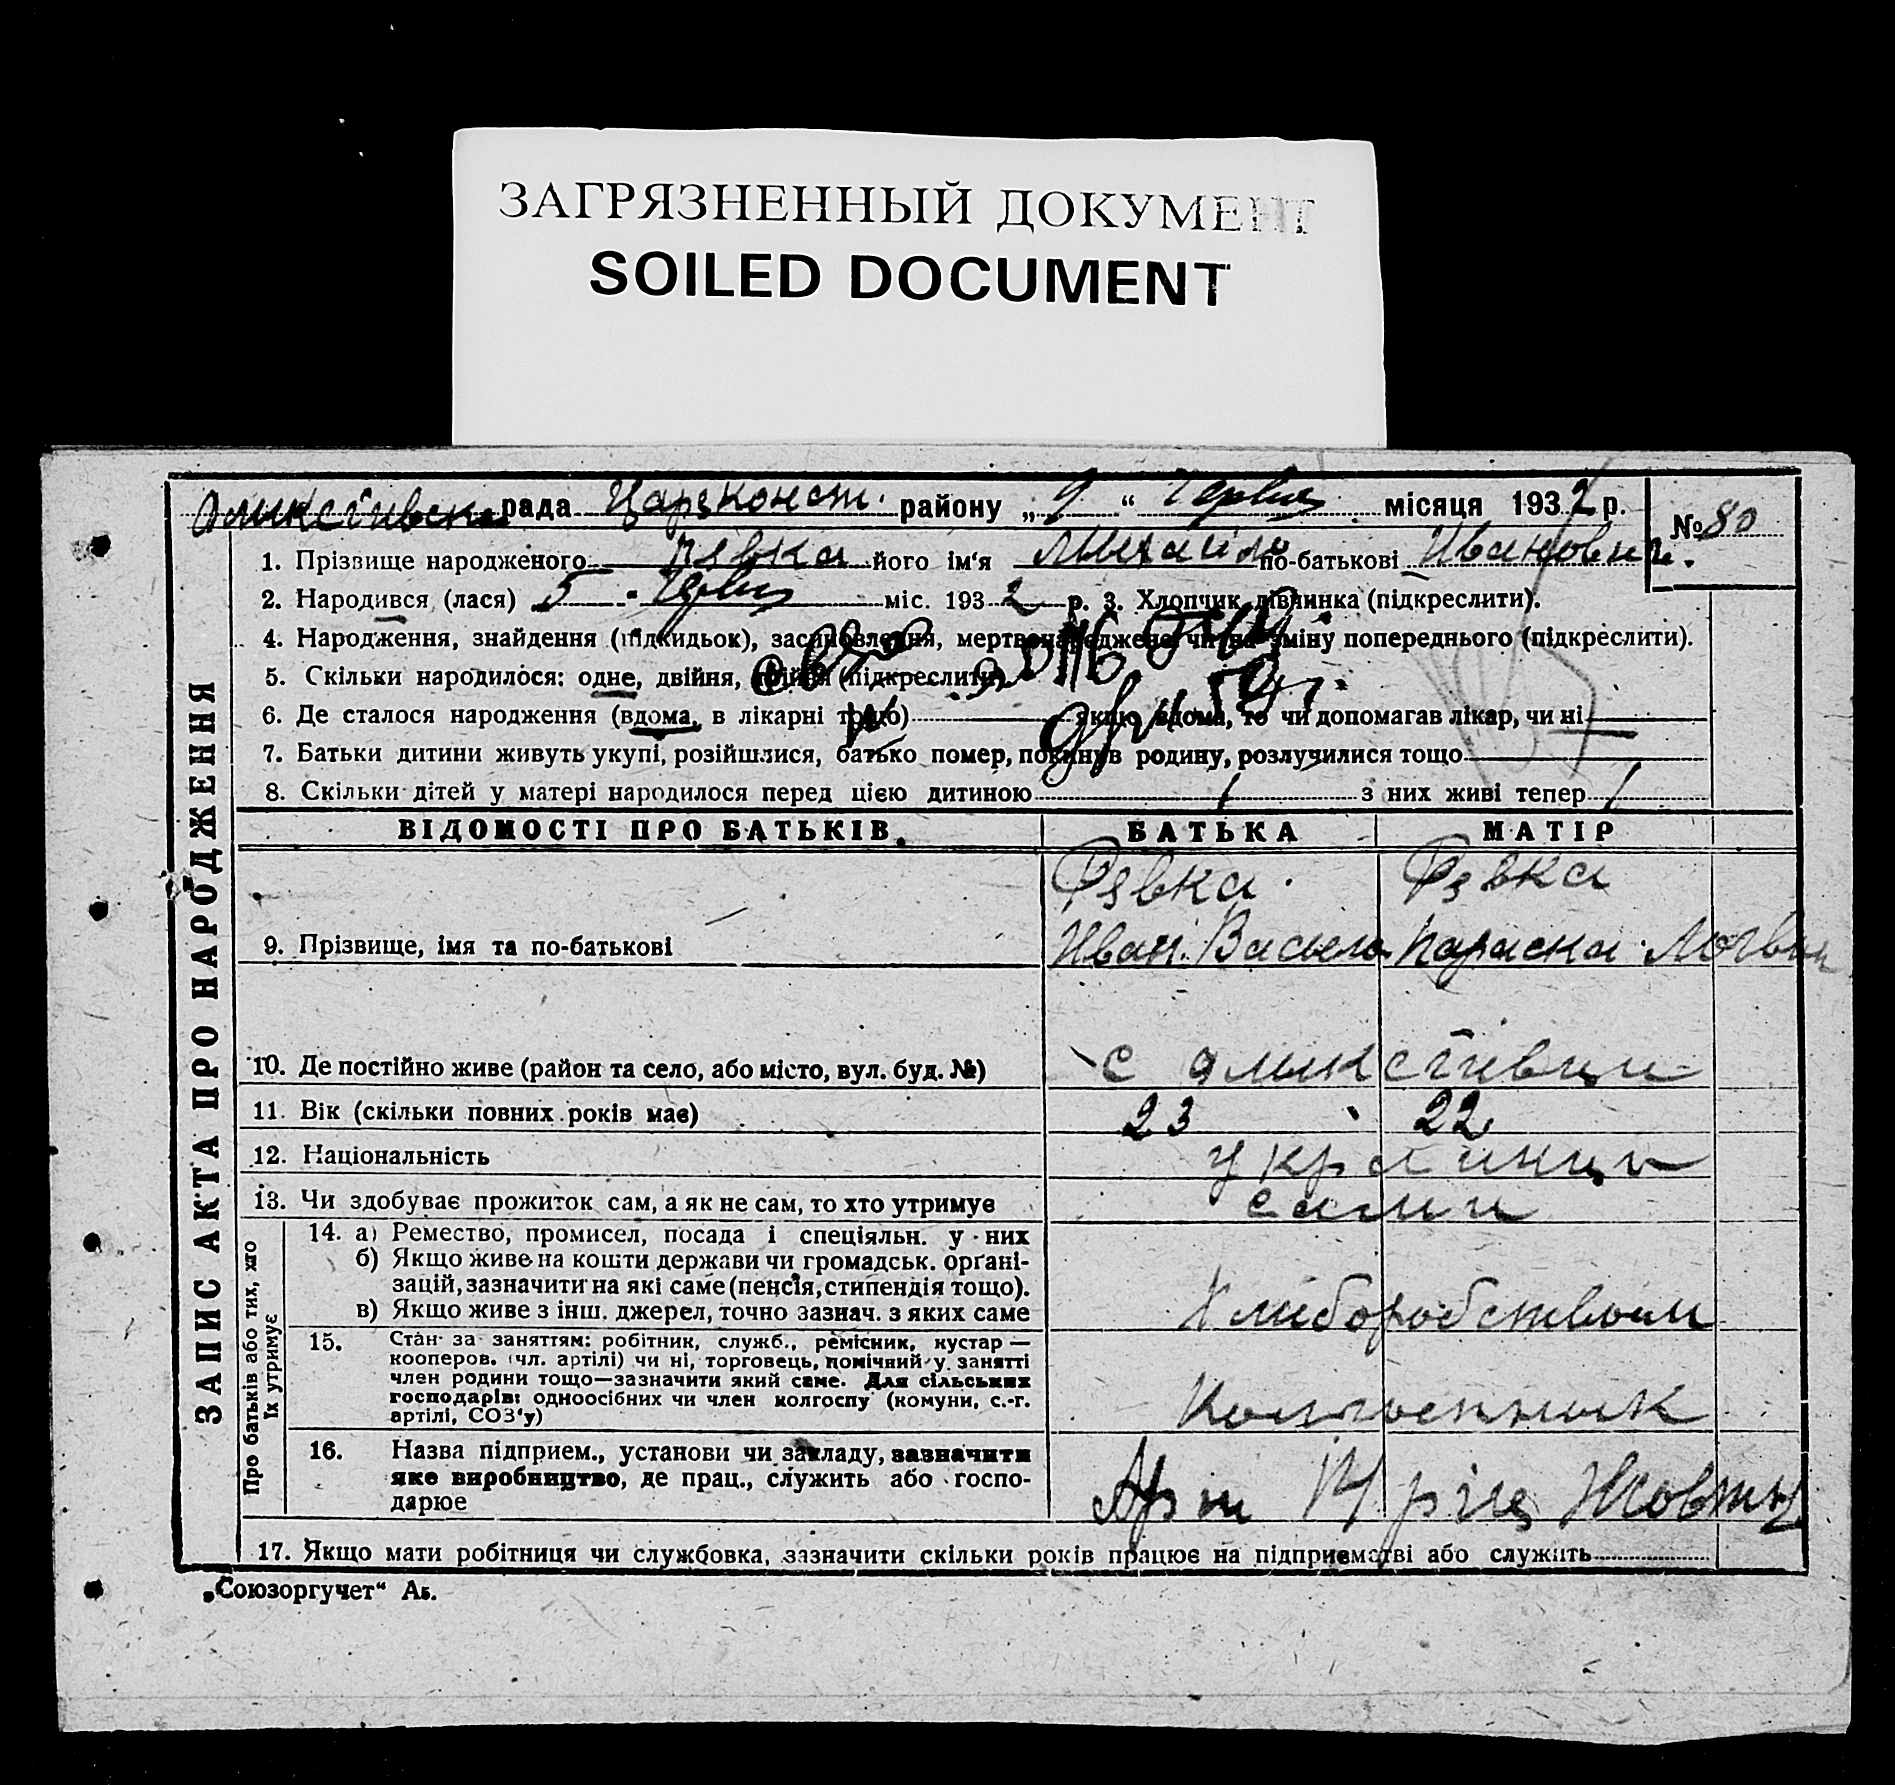 ЗАГРЯЗНЕННЫЙ ДОКУМЕНТ
SOILED DOCUMENT
рада Царэконст. району „9“ Червня місяця 1932 р. № 80
ЗАПИС АКТА ПРО НАРОДЖЕННЯ
1. Прізвище народженого його ім'я Михайло по-батькові Иванович.
2. Народився (лася) 5 Червня міс. 1932 р. 3. Хлопчик дівчинка (підкреслити).
4. Народження, знайдення (підкидьок), засиновлення, мертвонароджене чи на зміну попереднього (підкреслити).
5. Скільки народилося: одне, двійня, трійня (підкреслити)
6. Де сталося народження (вдома, в лікарні тощо) якщо вдома, то чи допомагав лікар, чи ні —
7. Батьки дитини живуть укупі, розійшлися, батько помер, покинув родину, розлучилися тощо
8. Скільки дітей у матері народилося перед цією дитиною 1 з них живі тепер 1
ВІДОМОСТІ ПРО БАТЬКІВ. БАТЬКА МАТІР
9. Прізвище, імя та по-батькові Иван. Василь Параска Логвин
10. Де постійно живе (район та село, або місто, вул. буд. №) с
11. Вік (скільки повних років має) 23 22
12. Національність українци
13. Чи здобуває прожиток сам, а як не сам, то хто утримує сами
Про батьків або тих, хто їх утримує
14. а) Ремество, промисел, посада і спеціяльн. у них
б) Якщо живе на кошти держави чи громадськ. організацій, зазначити на які саме (пенсія, стипендія тощо).
в) Якщо живе з інш. джерел, точно зазнач. з яких саме Хлиборобством
15. Стан за заняттям: робітник, служб., ремісник, кустар —
кооперов. (чл. артілі) чи ні, торговець, помічний у занятті
член родини тощо—зазначити який саме. Для сільських
господарів: одноосібних чи член колгоспу (комуни, с.-г.
артілі, СОЗ'у) Колгоспник
16. Назва підприєм., установи чи закладу, зазначити
яке виробництво, де прац., служить або господарює
17. Якщо мати робітниця чи службовка, зазначити скільки років працює на підприємстві або служить
„Союзоргучет“